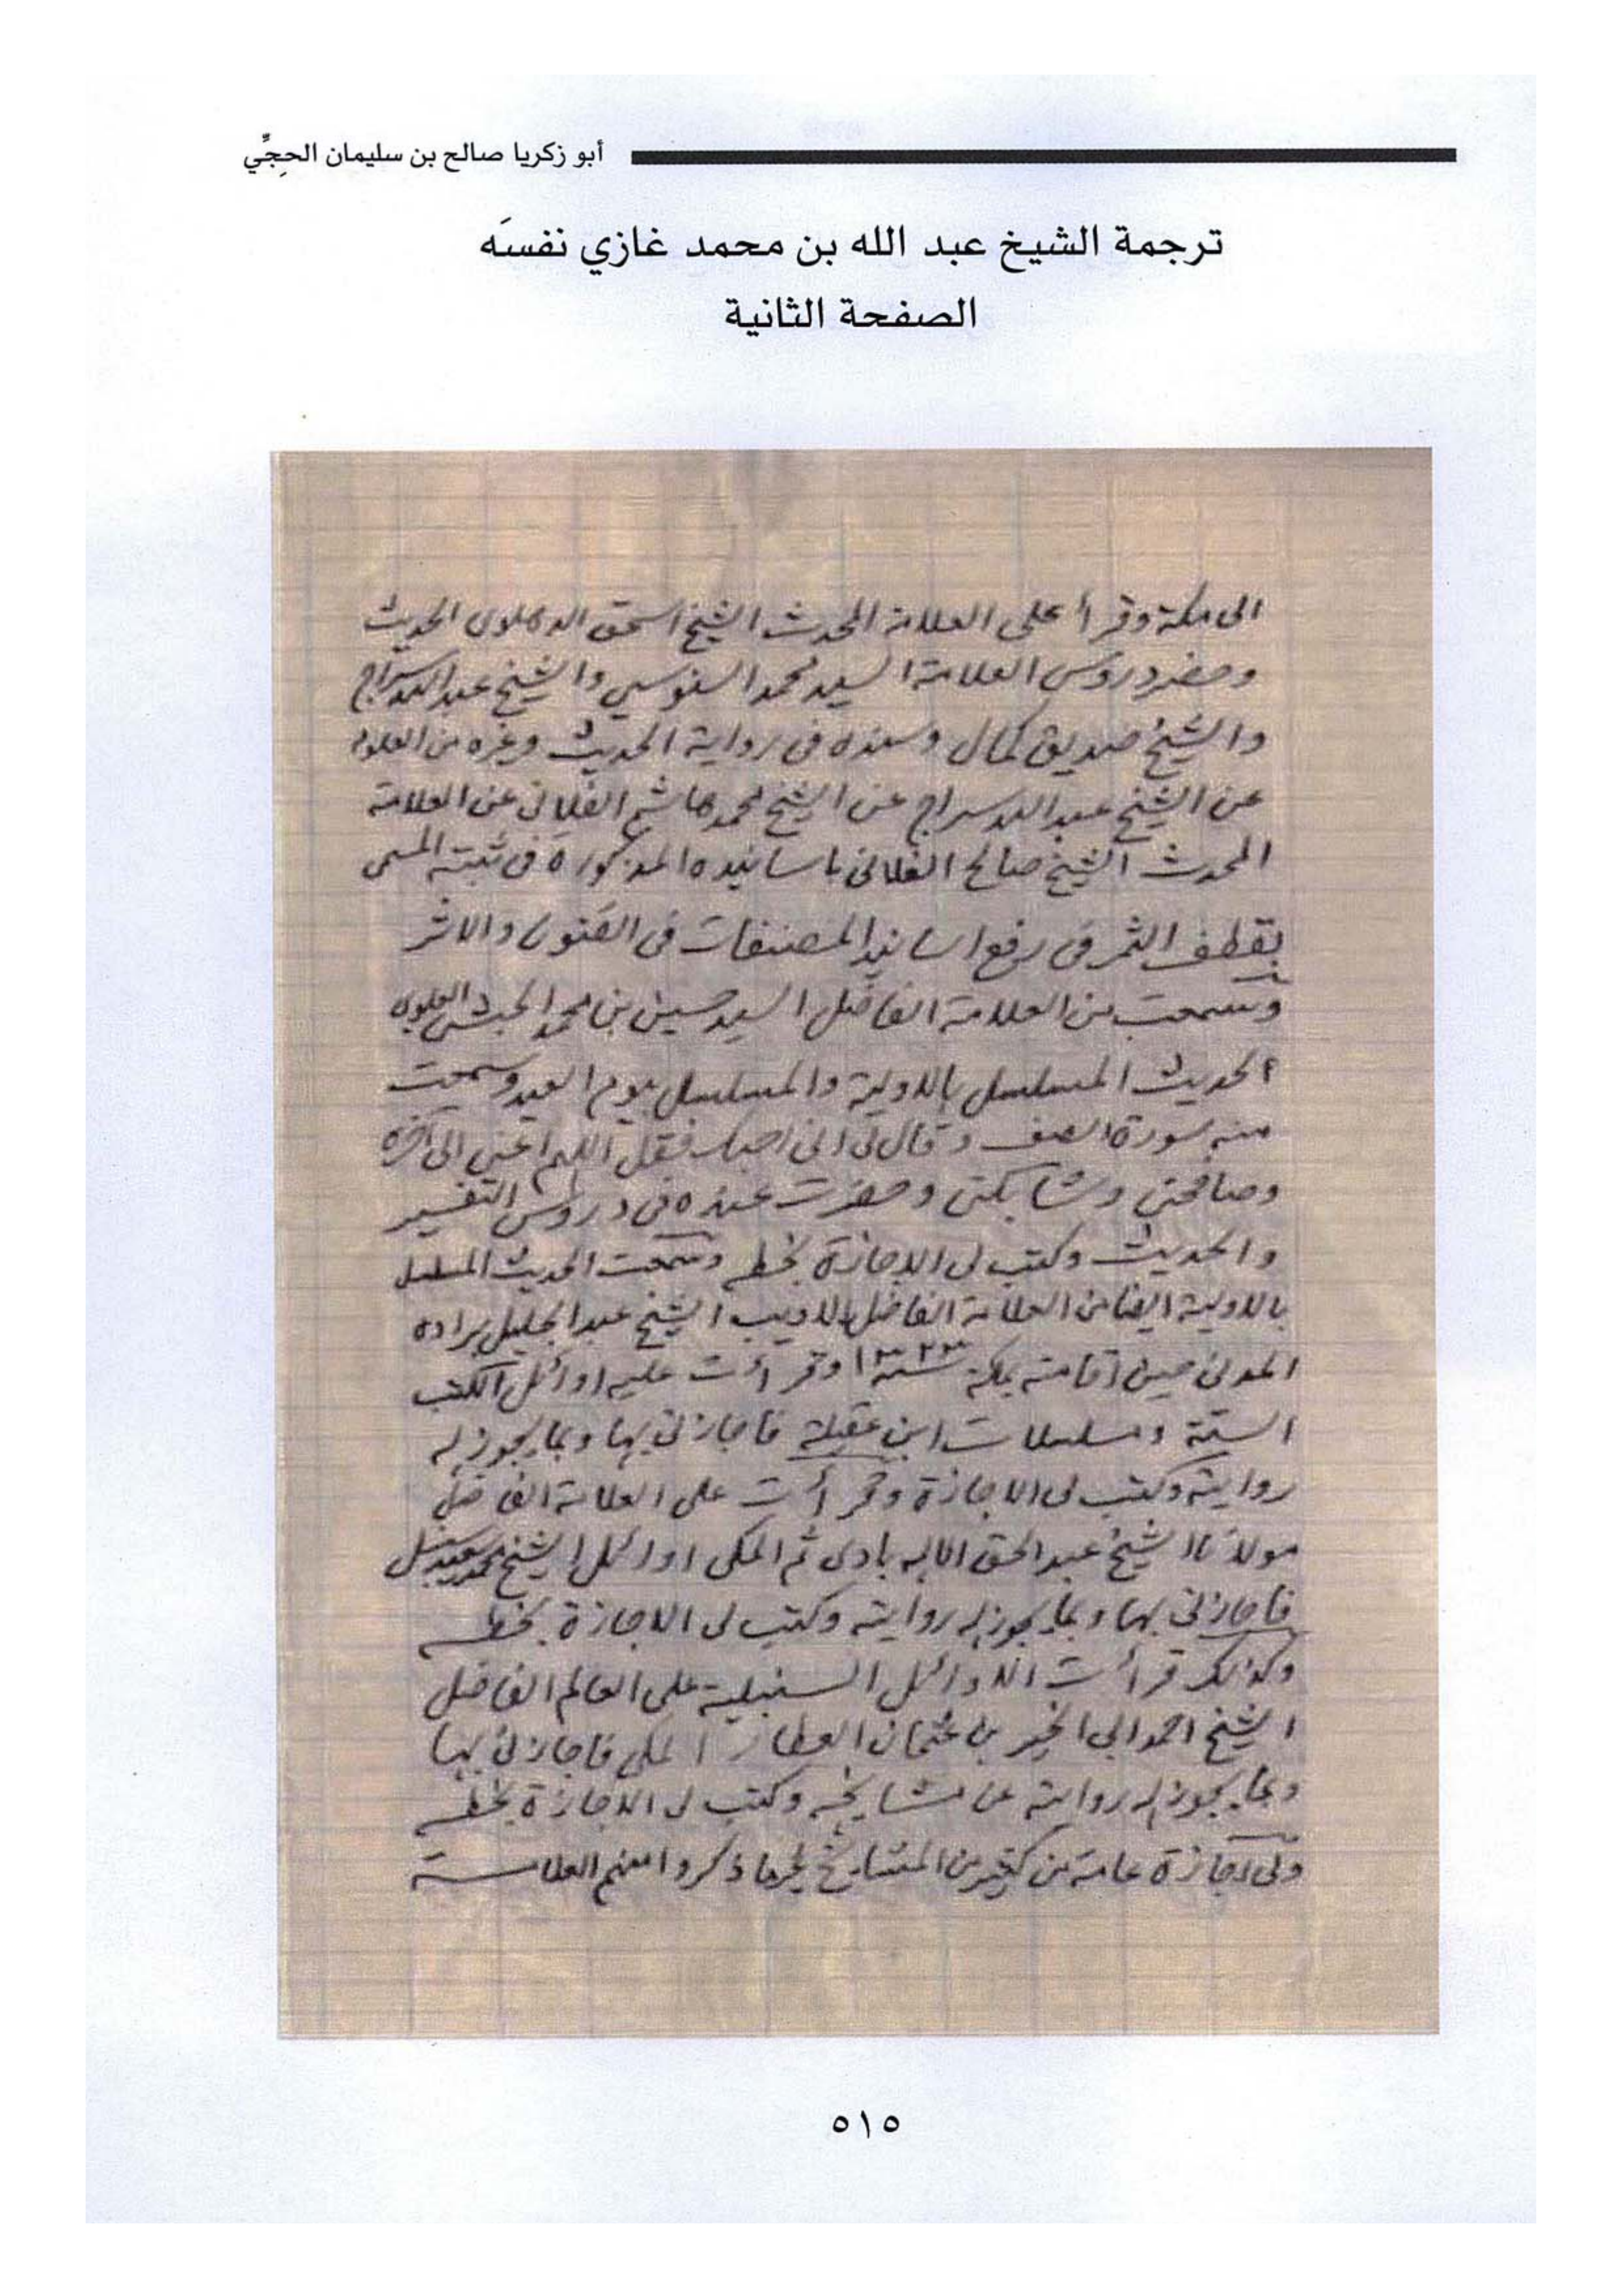 أبو زكريا صالح بن سليمان الحِجِّي
ترجمة الشيخ عبد الله بن محمد غازي نفسَه
الصفحة الثانية
الى مكة وقرأ على العلامة المحدث الشيخ اسحق الدهلوى الحديث
وحضر دروس العلامة السيد محمد السنوسي والشيخ عبد الله سراج
والشيخ صديق كمال وسنده فى رواية الحديث وغيره من العلوم
عن الشيخ عبد الله سراج عن الشيخ محمد هاشم الفلانى عن العلامة
المحدث الشيخ صالح الفلانى باسانيده المذكورة فى ثبته المسمى
بقطف الثمر فى رفع اسانيد المصنفات فى الفنون والاثر
وسمعت من العلامة الفاضل السيد حسين بن محمد الحبشى العلوى
الحديث المسلسل بالاولية والمسلسل بيوم العيد وسمعت
منه سورة الصف وقال لى انى احبك فقل اللهم اعنى الى آخره
وصافحنى وشابكنى وحضرت عنده فى دروس التفسير
والحديث وكتب لى الاجازة بخطه وسمعت الحديث المسلسل
بالاولية ايضا من العلامة الفاضل الاديب الشيخ عبد الجليل براده
المدنى حين اقامته بمكة سنة ١٣٢٣ وقرأت عليه اوائل الكتب
الستة ومسلسلات ابن عقيلة فاجازنى بها وبما يجوز له
روايته وكتب لى الاجازة وقرأت على العلامة الفاضل
مولانا الشيخ عبد الحق الاله بادى ثم المكى اوائل الشيخ محمد سعيد سنبل
فاجازنى بها وبما يجوز له روايته وكتب لى الاجازة بخطه
وكذلك قرأت الاوائل السنبلية على العالم الفاضل
الشيخ احمد ابى الخير بن عثمان العطار المكى فاجازنى بها
وبما يجوز له روايته عن مشايخه وكتب لى الاجازة بخطه
ولى اجازة عامة من كثير من المشايخ غير ما ذكروا منهم العلامة
٥١٥